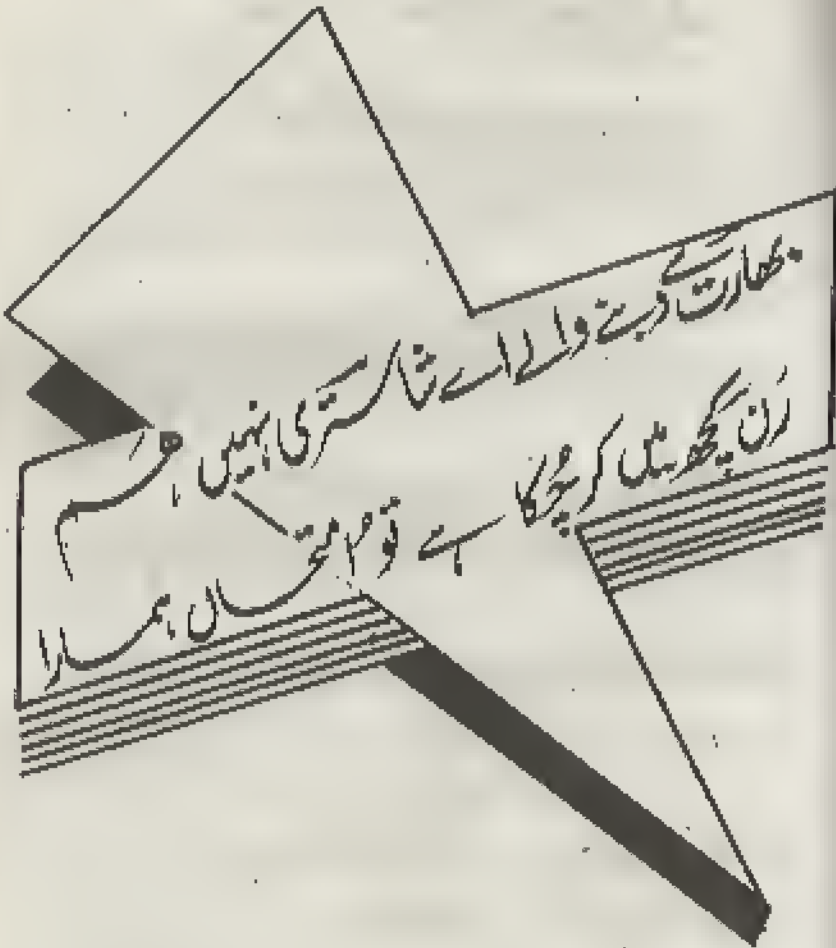 بھارت سے دبنے والے اے شاستری نہیں ہم
رَن کچھ میں کر چُکا ہے تو امتحاں ہمارا